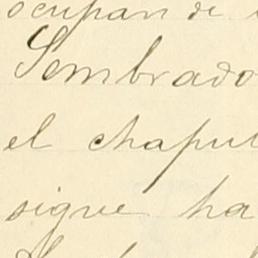 ocupan de
Sembrado
el chapul
sigue ha